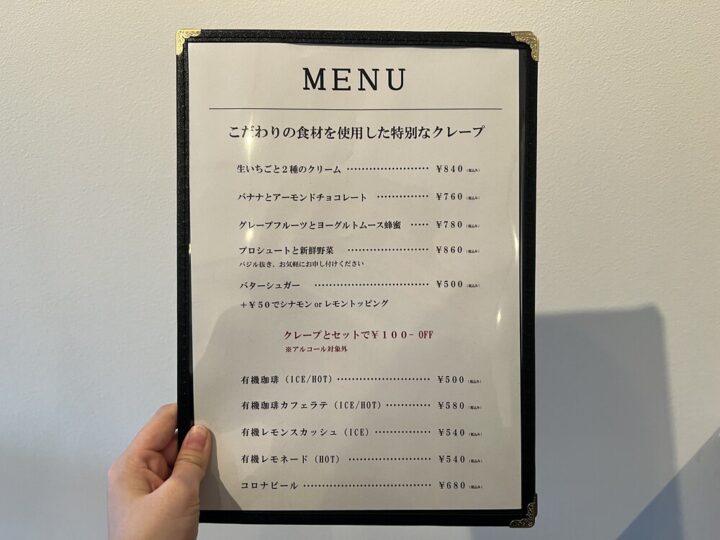 MENU
こだわりの食材を使用した特別なクレープ
生いちごと２種のクリーム ······················ ¥840（税込み）
バナナとアーモンドチョコレート ·············· ¥760（税込み）
グレープフルーツとヨーグルトムース蜂蜜 ····· ¥780（税込み）
プロシュートと新鮮野菜 ······················ ¥860（税込み）
バジル抜き、お気軽にお申し付けください
バターシュガー ······························ ¥500（税込み）
＋￥５０でシナモン or レモントッピング
クレープとセットで￥１００- OFF
※アルコール対象外
有機珈琲（ICE/HOT） ························· ¥500（税込み）
有機珈琲カフェラテ（ICE/HOT） ············· ¥580（税込み）
有機レモンスカッシュ（ICE） ··············· ¥540（税込み）
有機レモネード（HOT） ······················ ¥540（税込み）
コロナビール ································· ¥680（税込み）